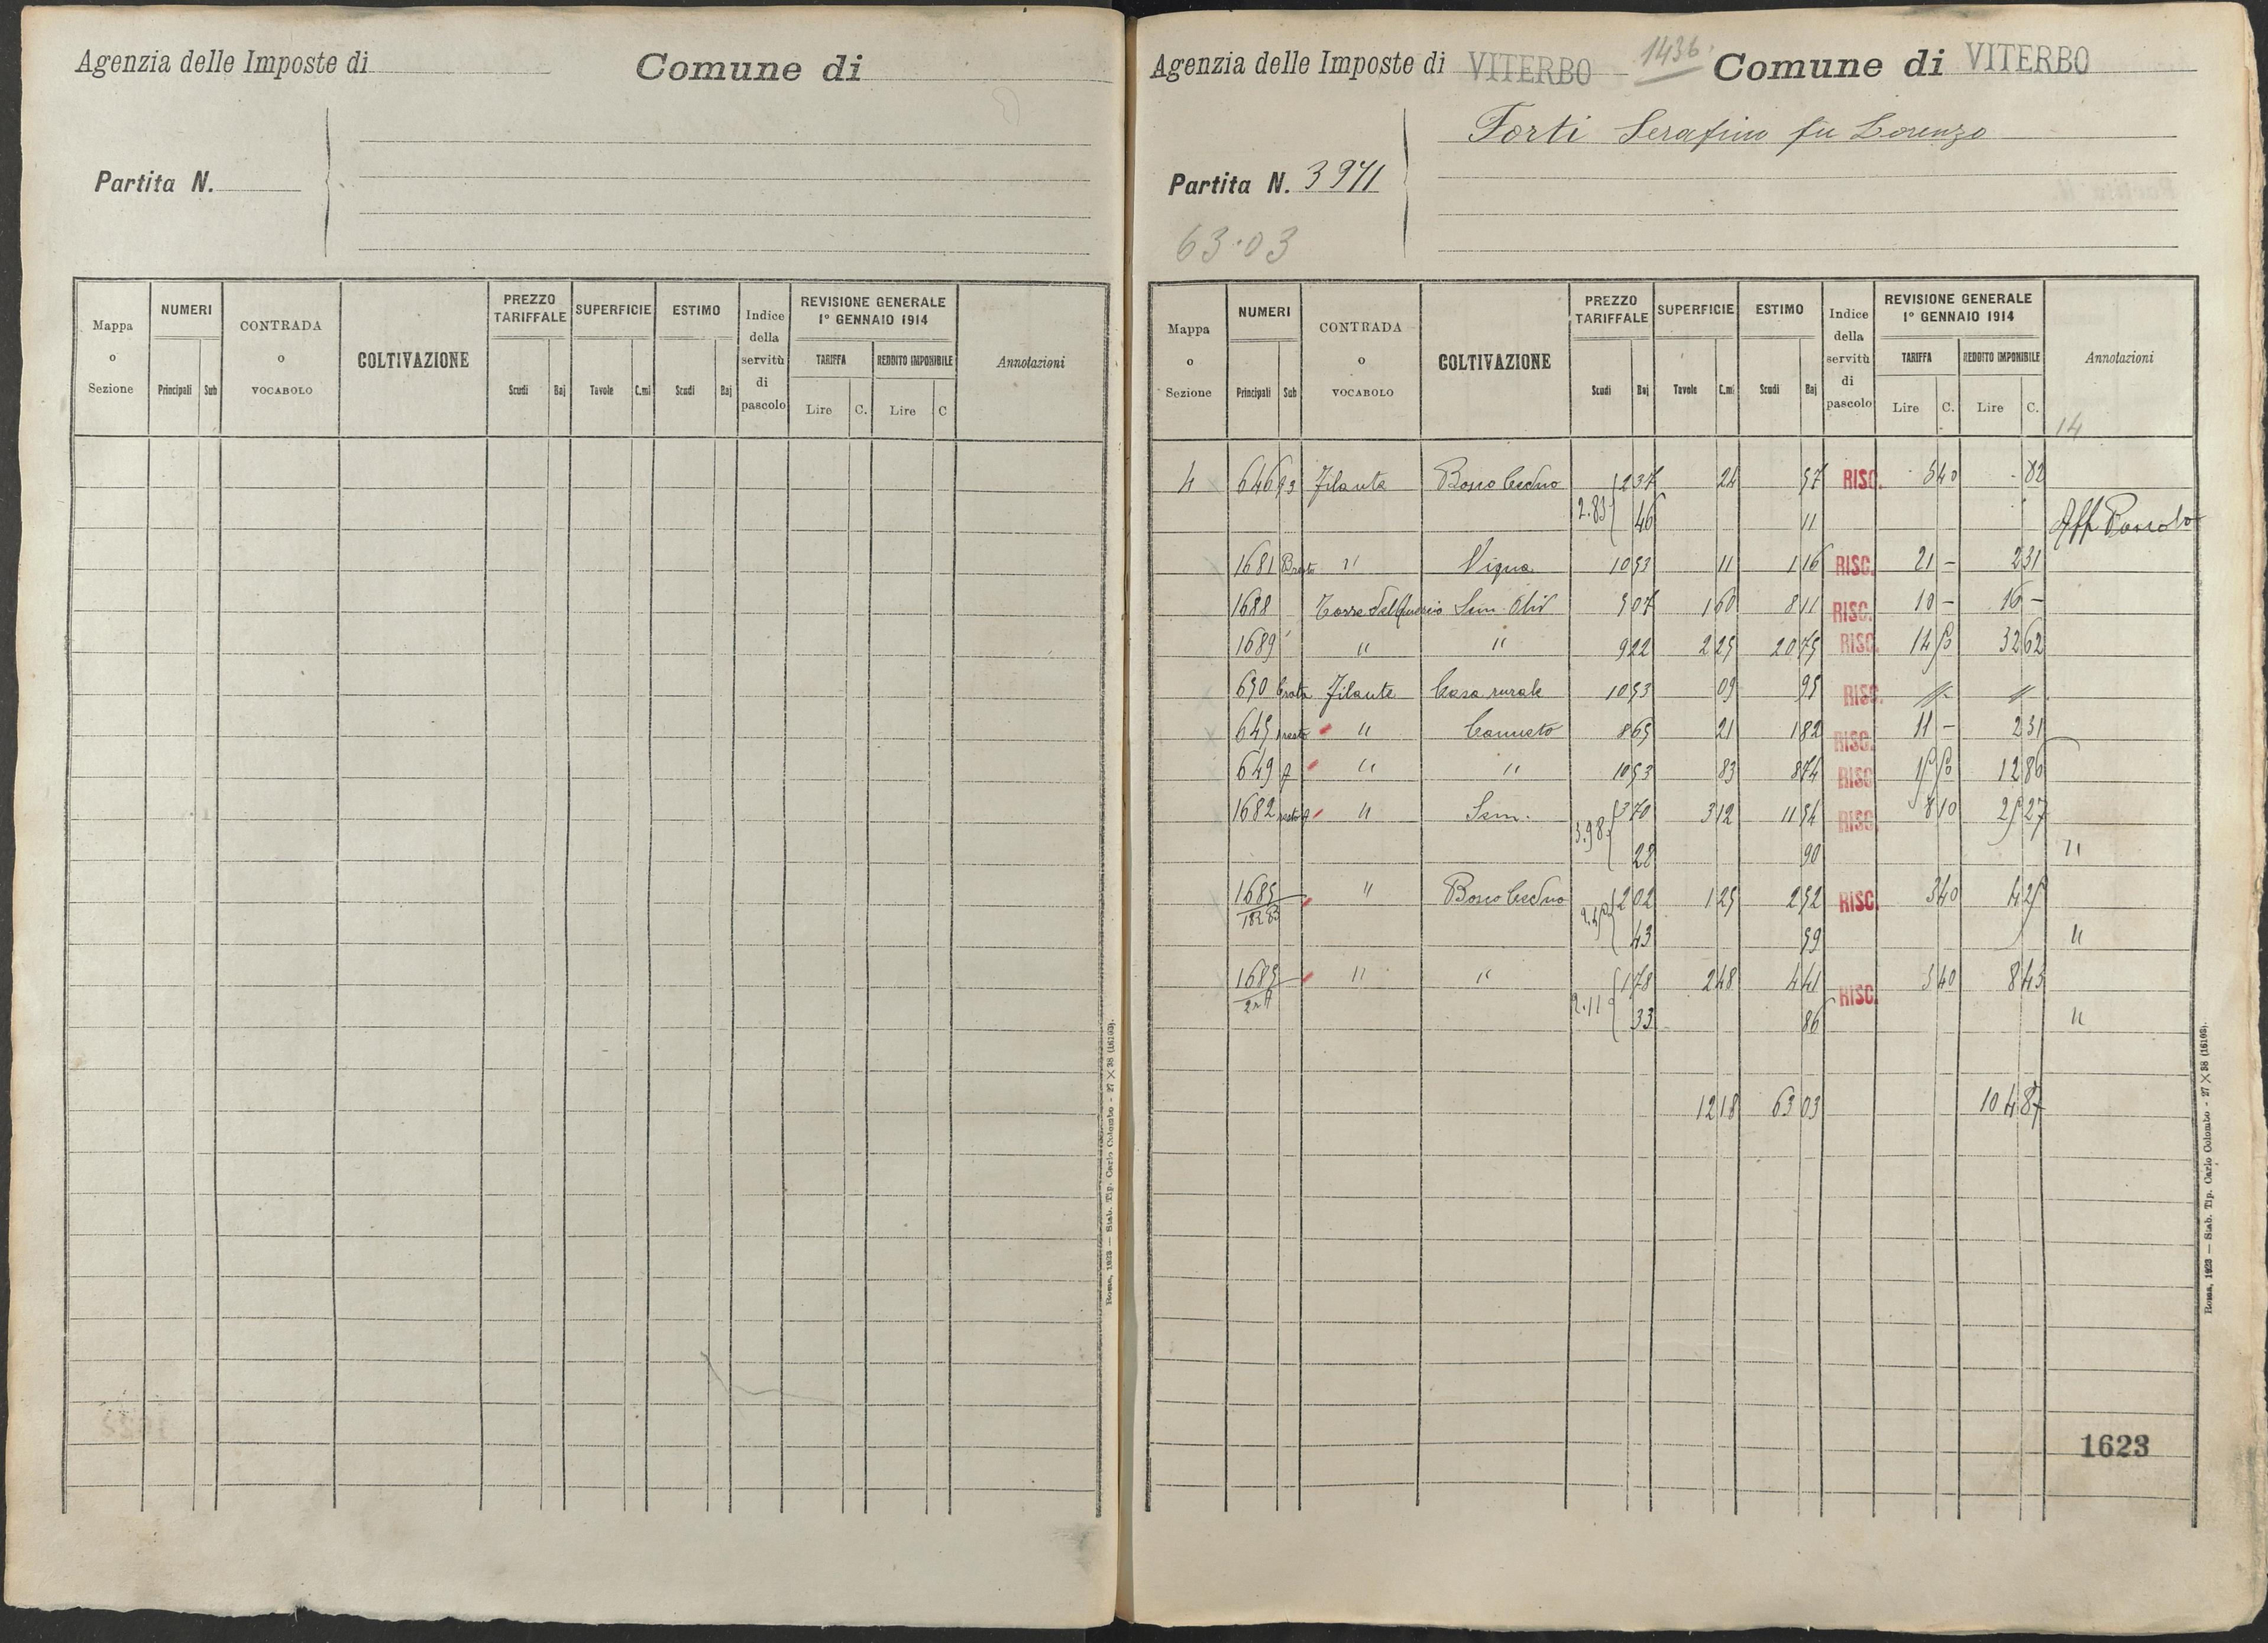 Agenzia delle Imposte di
Comune di
Partita N.
Mappa o Sezione
NUMERI
Principali Sub
CONTRADA o VOCABOLO
COLTIVAZIONE
PREZZO TARIFFALE
Scudi Baj
SUPERFICIE
Tavole C.mi
ESTIMO
Scudi Baj
Indice della servitù di pascolo
REVISIONE GENERALE
1° GENNAIO 1914
TARIFFA REDDITO IMPONIBILE
Lire C. Lire C
Annotazioni
Roma, 1923 — Stab. Tip. Carlo Colombo - 27 X 38 (16193).
Agenzia delle Imposte di VITERBO 1436. Comune di VITERBO
Forti Serafino fu Lorenzo
Partita N. 3971
63.03
Mappa o Sezione
NUMERI
Principali Sub
CONTRADA o VOCABOLO
COLTIVAZIONE
PREZZO TARIFFALE
Scudi Baj
SUPERFICIE
Tavole C.mi
ESTIMO
Scudi Baj
Indice della servitù di pascolo
REVISIONE GENERALE
1° GENNAIO 1914
TARIFFA REDDITO IMPONIBILE
Lire C. Lire C.
Annotazioni
14
4 646 Filante Bosco Ceduo 2 37 24 57 RISC. 3 40 - 82
2.83 46 11 Aff Pascolo
1681 " Vigna 10 53 11 1 16 RISC. 21 - 2 31
1688 Torre del Quercio Sem. Oliv 5 07 1 60 8 11 RISC. 10 - 16 -
1689 " " 9 22 2 25 20 75 RISC. 14 50 32 62
690 Filante Casa rurale 10 53 09 95 RISC.
645 resto " Canneto 8 65 21 1 82 RISC. 11 - 2 31
649 A " " 10 53 83 8 74 RISC 15 50 12 86
1682 resto A " Sem. 3 70 3 12 11 54 RISC. 8 10 25 27
3.98 28 90 "
1685 " Bosco Ceduo 2 02 1 25 2 52 RISC. 3 40 4 25
2.45 43 59 "
1685 " " 1 78 2 48 4 41 RISC. 3 40 8 43
2.11 33 86 "
12 18 63 03 104 87
1623
Roma, 1923 — Stab. Tip. Carlo Colombo - 27 X 38 (16193).